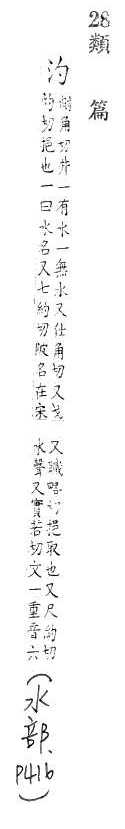 28 類篇
汋
𤃫角切井一有水一無水又仕角切又㫖
灼切挹也一曰水名又七約切陂名在宋
又職略切挹取也又尺約切
水聲又實若切文一重音六
(水部、P416)